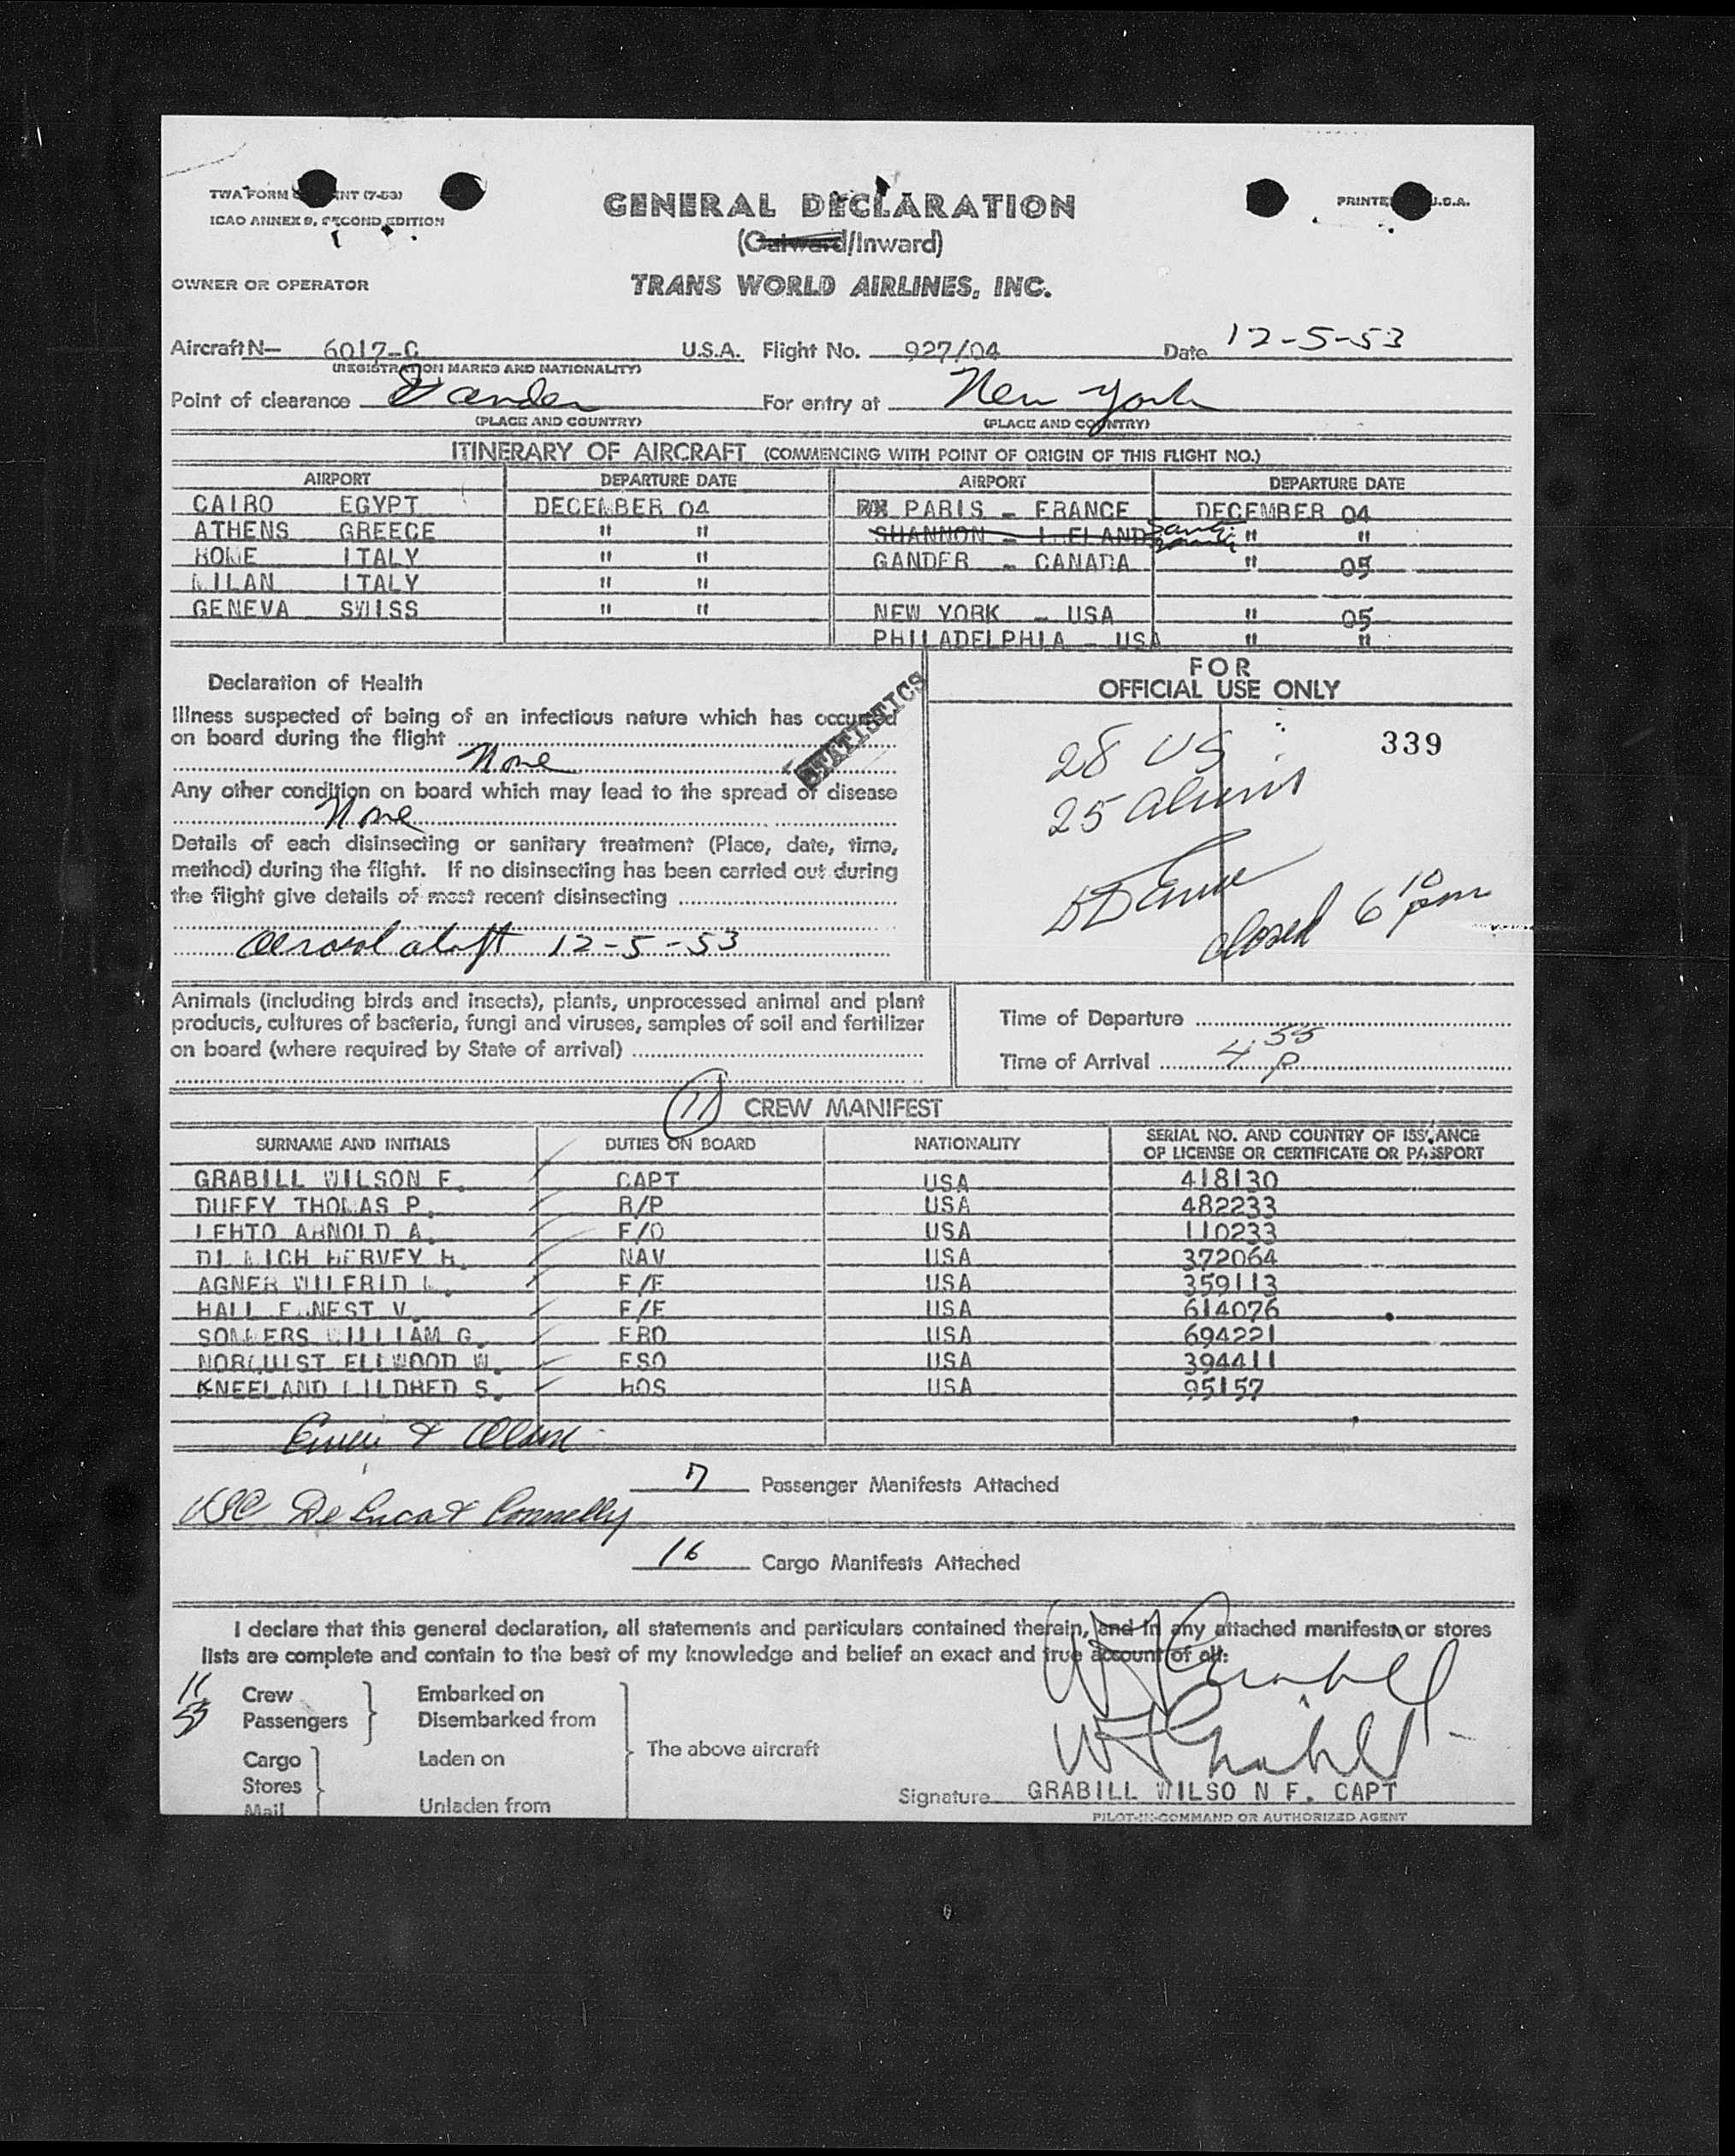 TWA FORM NT (7-53)
ICAO ANNEX 9, SECOND EDITION
PRINTE U.S.A.
GENERAL DECLARATION
(Outward/Inward)
OWNER OR OPERATOR
TRANS WORLD AIRLINES, INC.
Aircraft N— 6017-C U.S.A. Flight No. 927/04 Date 12-5-53
(REGISTRATION MARKS AND NATIONALITY)
Point of clearance Gander For entry at New York
(PLACE AND COUNTRY) (PLACE AND COUNTRY)
ITINERARY OF AIRCRAFT (COMMENCING WITH POINT OF ORIGIN OF THIS FLIGHT NO.)
AIRPORT DEPARTURE DATE AIRPORT DEPARTURE DATE
CAIRO EGYPT DECEMBER 04 PARIS - FRANCE DECEMBER 04
ATHENS GREECE " " SHANNON - IRELAND Santa Maria " "
ROME ITALY " " GANDER - CANADA " 05
MILAN ITALY " "
GENEVA SWISS " " NEW YORK - USA " 05
PHILADELPHIA - USA " "
Declaration of Health
Illness suspected of being of an infectious nature which has occurred
on board during the flight
None
Any other condition on board which may lead to the spread of disease
None
Details of each disinsecting or sanitary treatment (Place, date, time,
method) during the flight. If no disinsecting has been carried out during
the flight give details of most recent disinsecting
Aerosol aloft 12-5-53
STATISTICS
FOR
OFFICIAL USE ONLY
339
28 US
25 aliens
closed 6 10 pm
Animals (including birds and insects), plants, unprocessed animal and plant
products, cultures of bacteria, fungi and viruses, samples of soil and fertilizer
on board (where required by State of arrival)
Time of Departure
Time of Arrival 4 55 P
11 CREW MANIFEST
SURNAME AND INITIALS DUTIES ON BOARD NATIONALITY SERIAL NO. AND COUNTRY OF ISSUANCE
OF LICENSE OR CERTIFICATE OR PASSPORT
GRABILL WILSON F. CAPT USA 418130
DUFFY THOMAS P. R/P USA 482233
LEHTO ARNOLD A. F/O USA 110233
HERVEY H. NAV USA 372064
AGNER WILFRID L. F/E USA 359113
HALL ERNEST V. F/E USA 614076
SOMMERS WILLIAM G. FRO USA 694221
NORQUIST ELLWOOD W. FSO USA 394411
KNEELAND MILDRED S. HOS USA 95157
7 Passenger Manifests Attached
De Luca & Connelly
16 Cargo Manifests Attached
I declare that this general declaration, all statements and particulars contained therein, and in any attached manifests or stores
lists are complete and contain to the best of my knowledge and belief an exact and true account of all:
11 Crew Embarked on
53 Passengers Disembarked from
Cargo Laden on
Stores
Mail Unladen from
The above aircraft
WF Grabill
WF Grabill
Signature GRABILL WILSO N F. CAPT
PILOT-IN-COMMAND OR AUTHORIZED AGENT